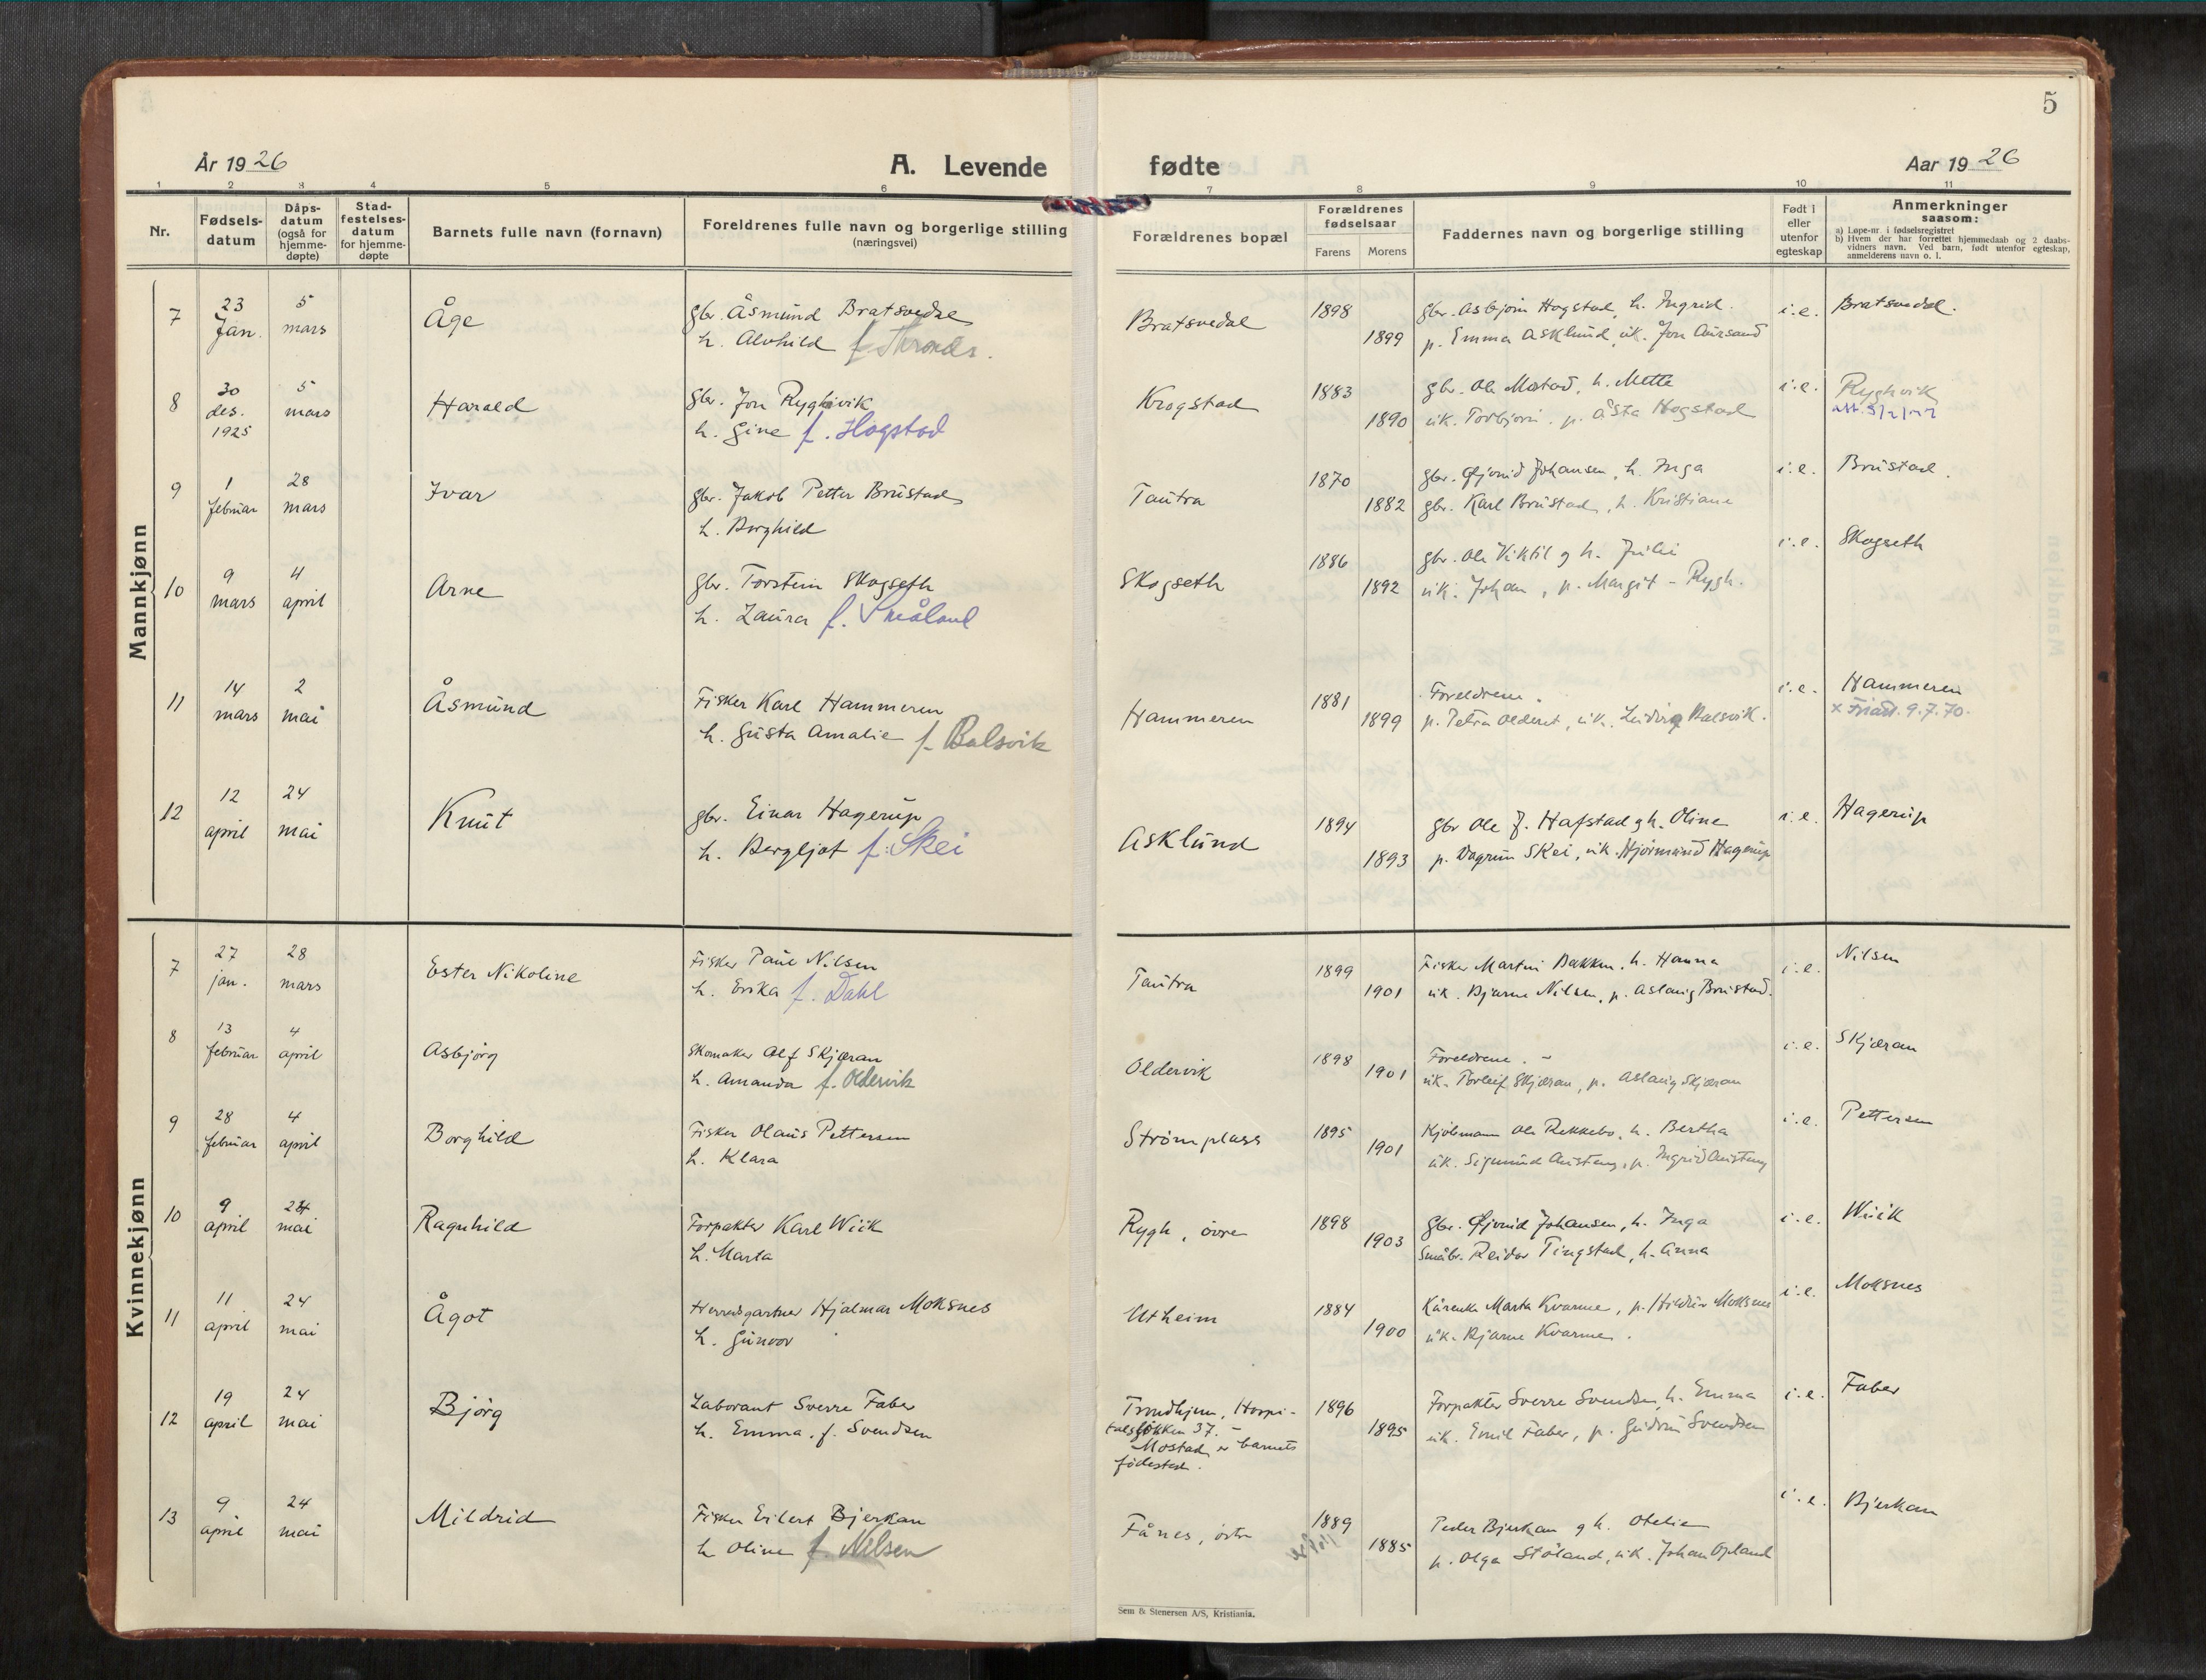 5
År 1926
A. Levende fødte
Aar 1926
1 2 3 4 5 6 7 8 9 10 11
Nr.
Fødsels-datum
Dåps-datum (også for hjemme-døpte)
Stad-festelses-datum for hjemme-døpte
Barnets fulle navn (fornavn)
Foreldrenes fulle navn og borgerlige stilling (næringsvei)
Forældrenes bopæl
Forældrenes fødselsaar
Farens Morens
Faddernes navn og borgerlige stilling
Født i eller utenfor egteskap
Anmerkninger saasom:
a) Løpe-nr. i fødselsregistret
b) Hvem der har forrettet hjemmedaab og 2 daabs-vidners navn. Ved barn, født utenfor egteskap, anmelderens navn o. l.
Mannkjønn
7 23 Jan. 5 mars Åge gbr. Åsmund Bratsvedal Bratsvedal 1898 gbr. Asbjørn Hogstad, h. Ingrid. i.e. Bratsvedal.
h. Alvhild f. 1899 p. Emma Asklund, uk. Jon Aursand
8 30 des. 1925 5 mars Harald gbr. Jon Ryghvik Krogstad 1883 gbr. Ole Mostad, h. Mette i.e. Ryghvik
h. Gine f. Hogstad 1890 uk. Torbjørn, p. Åsta Hogstad
9 1 februar 28 mars Ivar gbr. Jakob Petter Brustad Tautra 1870 gbr. Øjvind Johansen, h. Inga i.e. Brustad.
h. Borghild 1882 gbr. Karl Brustad, h. Kristiane
10 9 mars 4 april Arne gbr. Torstein Skogseth Skogseth 1886 gbr. Ole Viktil og h. Julie i.e. Skogseth
h. Laura f. Småland 1892 uk. Johan, p. Margit - Rygh.
11 14 mars 2 mai Åsmund Fisker Karl Hammeren Hammeren 1881 Foreldrene. i.e. Hammeren
h. Gusta Amalie f. Balsvik 1899 p. Petra Olderet, uk. Ludvig Balsvik. 9.7.70.
12 12 april 24 mai Knut gbr. Einar Hagerup Asklund 1894 gbr Ole J. Hafstad og h. Oline i.e. Hagerup
h. Bergljot f. Skei 1893 p. Dagrun Skei, uk. Hjørmund Hagerup
Kvinnekjønn
7 27 jan. 28 mars Ester Nikoline Fisker Paul Nilsen Tautra 1899 Fisker Martin Bakken, h. Hanna i.e. Nilsen
h. Erika f. Dahl 1901 uk. Bjarne Nilsen, p. Aslaug Brustad.
8 13 februar 4 april Asbjørg Skomaker Alf Skjæran Oldervik 1898 Foreldrene. - i.e. Skjæran
h. Amanda f. Oldervik 1901 uk. Torleif Skjæran, p. Aslaug Skjæran
9 28 februar 4 april Borghild Fisker Olaus Pettersen Strømplass 1895 Kjøbmann Ole Rekkebo, h. Bertha i.e. Pettersen
h. Klara 1901 uk. Sigmund Austeng, p. Ingrid Austeng
10 9 april 24 mai Ragnhild Forpakter Karl Wiik Rygh, øvre 1898 Gbr. Øjvind Johansen, h. Inga i.e. Wiik
h. Marta 1903 Småbr. Reidar Tingstad, h. Anna
11 11 april 24 mai Ågot Herredsgartner Hjalmar Moksnes Utheim 1884 Kårenke Marta Kvarme, p. Hildur Moksnes i.e. Moksnes
h. Gunvor 1900 uk. Bjarne Kvarme.
12 19 april 24 mai Bjørg Laborant Sverre Faber Trondhjem, Hospi- 1896 Forpakter Sverre Svendsen, h. Emma i.e. Faber
h. Emma, f. Svendsen talsløkken 37. - 1895 uk. Emil Faber, p. Gudrun Svendsen
Mostad er barnets
fødested.
13 9 april 24 mai Mildrid Fisker Eilert Bjerkan Fånes, østre 1889 Peder Bjerkan og h. Otelie i.e. Bjerkan
h Oline f. Nilsen 1885 p. Olga Støland, uk. Johan Opland
Sem & Stenersen A/S, Kristiania.